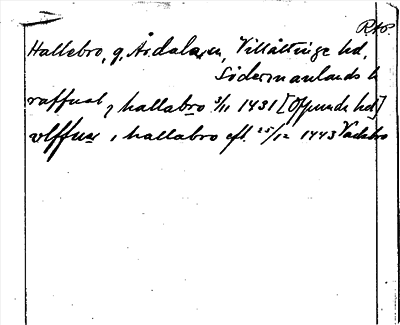 RAP.
Hallebro, g, Årdala sn, Villåttinge hd,
Södermanlands l
raffual, hallabro 3/11 1431 [Oppunda hd]
vlffuar, hallabro eft. 25/12 1443 Vadabro